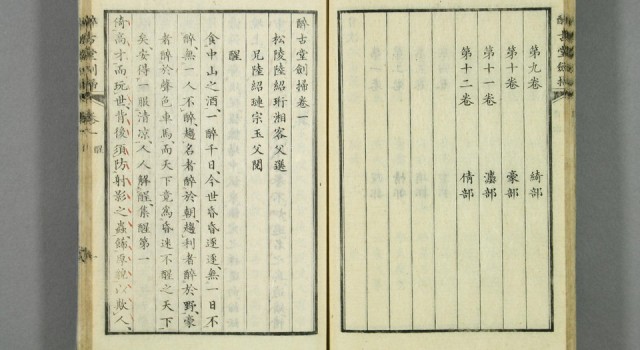 第九卷 綺部
第十卷 豪部
第十一卷 灋部
第十二卷 倩部
醉古堂劍掃卷一
松陵陸紹珩湘客父選
兄陸紹璉宗玉父閱
醒
食中山之酒、一醉千日、今世昏昏逐逐、無一日不
醉、無一人不醉、趨名者醉於朝、趨利者醉於野、豪
者醉於聲色車馬、而天下竟爲昏迷不醒之天下
矣、安得一服清凉、人人解酲、集醒第一
倚高才而玩世、背後須防射影之蟲、飾厚貌以欺人、
醉古堂劍掃 卷一 醒